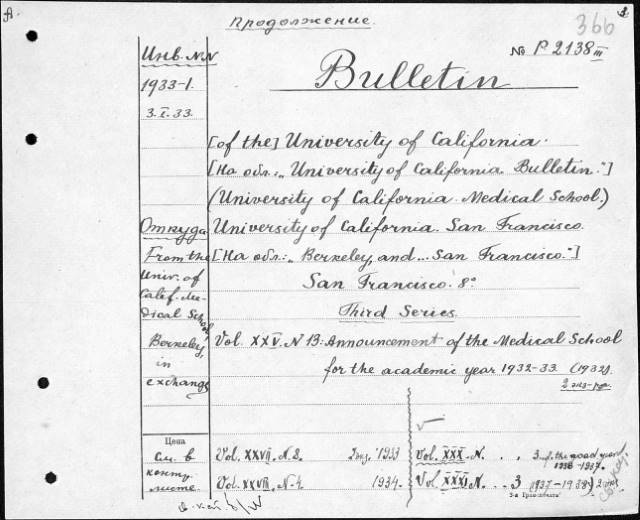 Продолжение.
366
Инв. N.N
№ P 2138 III
1933-1.
3.I.33.
Bulletin
[of the] University of California.
[На обл.: „University of California Bulletin."]
(University of California Medical School.)
Откуда
University of California. San Francisco.
From the
[На обл.: „Berkeley, and... San Francisco."]
Univ. of
Calif. Me-
San Francisco. 8°
dical School,
Third Series.
Berkeley,
Vol. XXV. N 13: Announcement of the Medical School
in
for the academic year 1932-33. (1932).
exchange
2 экз-ра.
Цена
см. в
Vol. XXVII. N. 2. 2 экз. 1933
Vol. XXX. N. . . 3 f. the acad year
1936-1937.
конту.
листе
Vol. XXVIII. N. 4. 1934.
Vol. XXXI N. . . 3 1937-1938) 2 экз